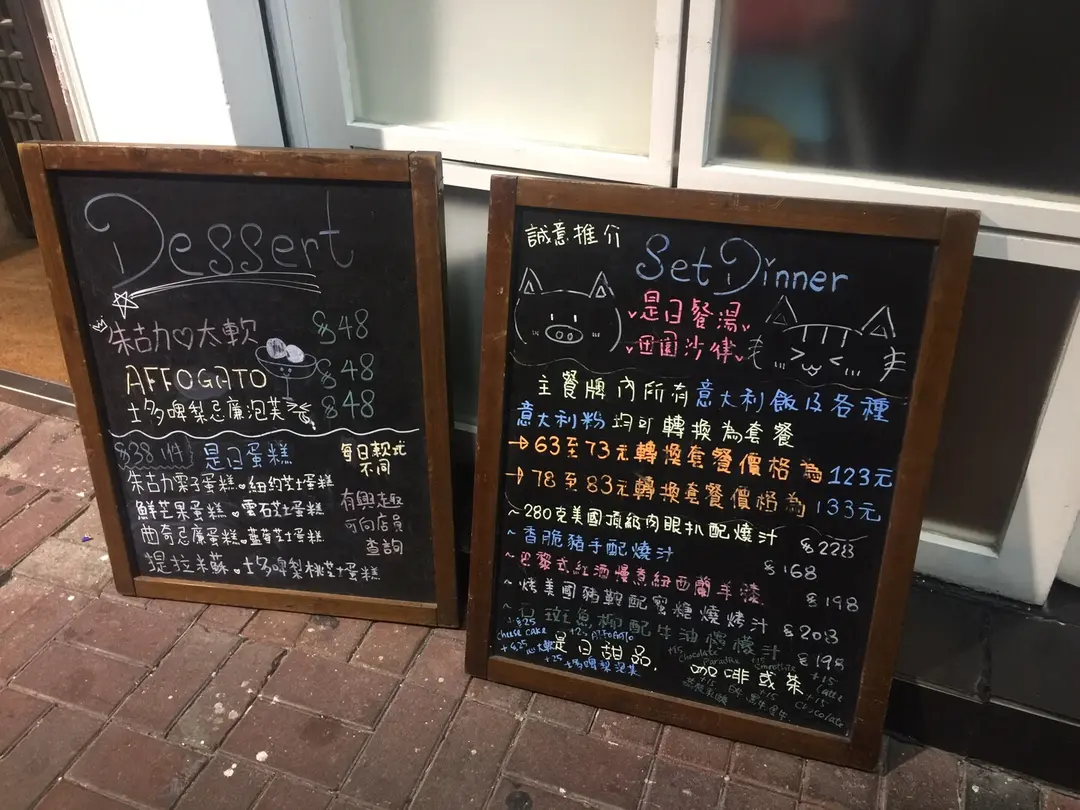 Dessert
朱古力♡太軟 $48
AFFOGATO $48
士多啤梨忌廉泡芙 $48
$38 1件 是日蛋糕
朱古力栗子蛋糕 • 紐約芝士蛋糕
鮮芒果蛋糕 • 雲石芝士蛋糕
曲奇忌廉蛋糕 • 藍莓芝士蛋糕
提拉米蘇 • 士多啤梨桃芝士蛋糕
每日款式
不同
有興趣
可向店員
查詢
誠意推介
Set Dinner
是日餐湯
田園沙律
主餐牌內所有意大利飯及各種
意大利粉均可轉換為套餐
→ 63至73元轉換套餐價格為123元
→ 78至83元轉換套餐價格為133元
~280克美國頂級肉眼扒配燒汁 $228
~香脆豬手配燒汁 $168
~巴黎式紅酒慢煮紐西蘭羊膝 $198
~烤美國豬鞍配蜜糖燒烤汁 $208
~豆斑魚柳配牛油檸檬汁 $198
是日甜品
+$25
cheese cake
AFFOGATO
+25 士多啤梨泡芙
咖啡或茶
+15
Chocolate
Paradise
+15
Smoothie
+15
Chocolate